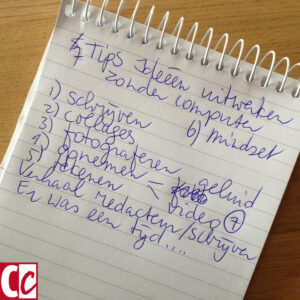 7 Tips Ideeën uitwerken
zonder computer
1) schrijven 6) mindset
2) collages
3) fotograferen
4) opnemen < geluid
video 7
5) tekenen
Verhaal redacteren/schrijven
Er was een tijd....
CC